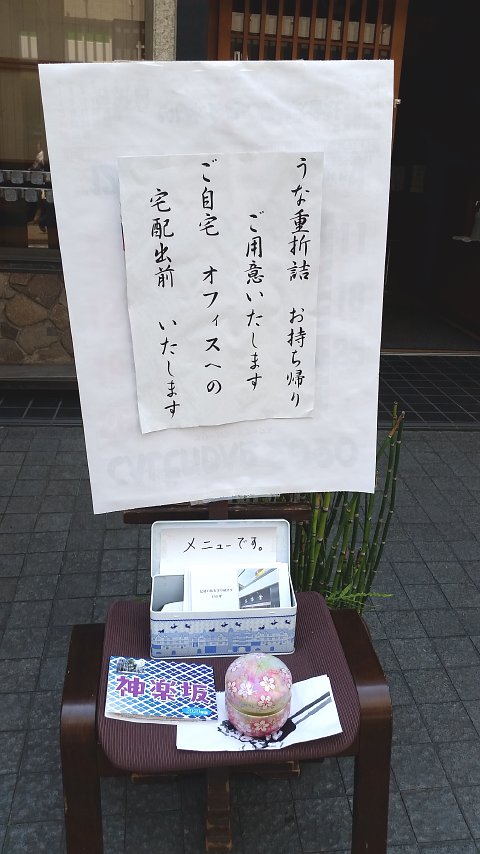 うな重折詰 お持ち帰り
ご用意いたします
ご自宅 オフィスへの
宅配出前 いたします
メニューです。
神楽坂